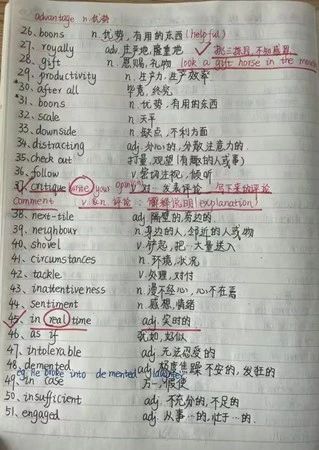 advantage n.优势
26. boons n.优势,有用的东西(helpful)
27. royally adv.庄严地,隆重地
28. gift n.恩赐,礼物 look a gift horse in the mouth
29. productivity n.生产力,生产效率
30. after all 毕竟,终究
31. boons n.优势,有用的东西
32. scale n.天平
33. downside n.缺点,不利方面
34. distracting adj.分心的,分散注意力的
35. check out 打量,观望(有趣的人或事)
36. follow v.密切注视,倾听
37. critique write your opinion 对…发表评论 写下来的评论
comment v & n.评论;解释说明 explanation
38. next-tile adj.隔壁的,旁边的
39. neighbour n.身边的人,邻近的人或物
40. shovel v.铲起,把…大量送入
41. circumstances n.环境,状况
42. tackle v.处理,对付
43. inattentiveness n.漫不经心,心不在焉
44. sentiment n.感想,情绪
45. in real time adj.实时的
46. as if 犹如,好似
47. intolerable adj.无法忍受的
48. demented adj.极度焦躁不安的,发狂的
eg. He broke into demented laughter
49. in case 万一,假使
50. insufficient adj.不充分的,不足的
51. engaged adj.从事…的,忙于…的.